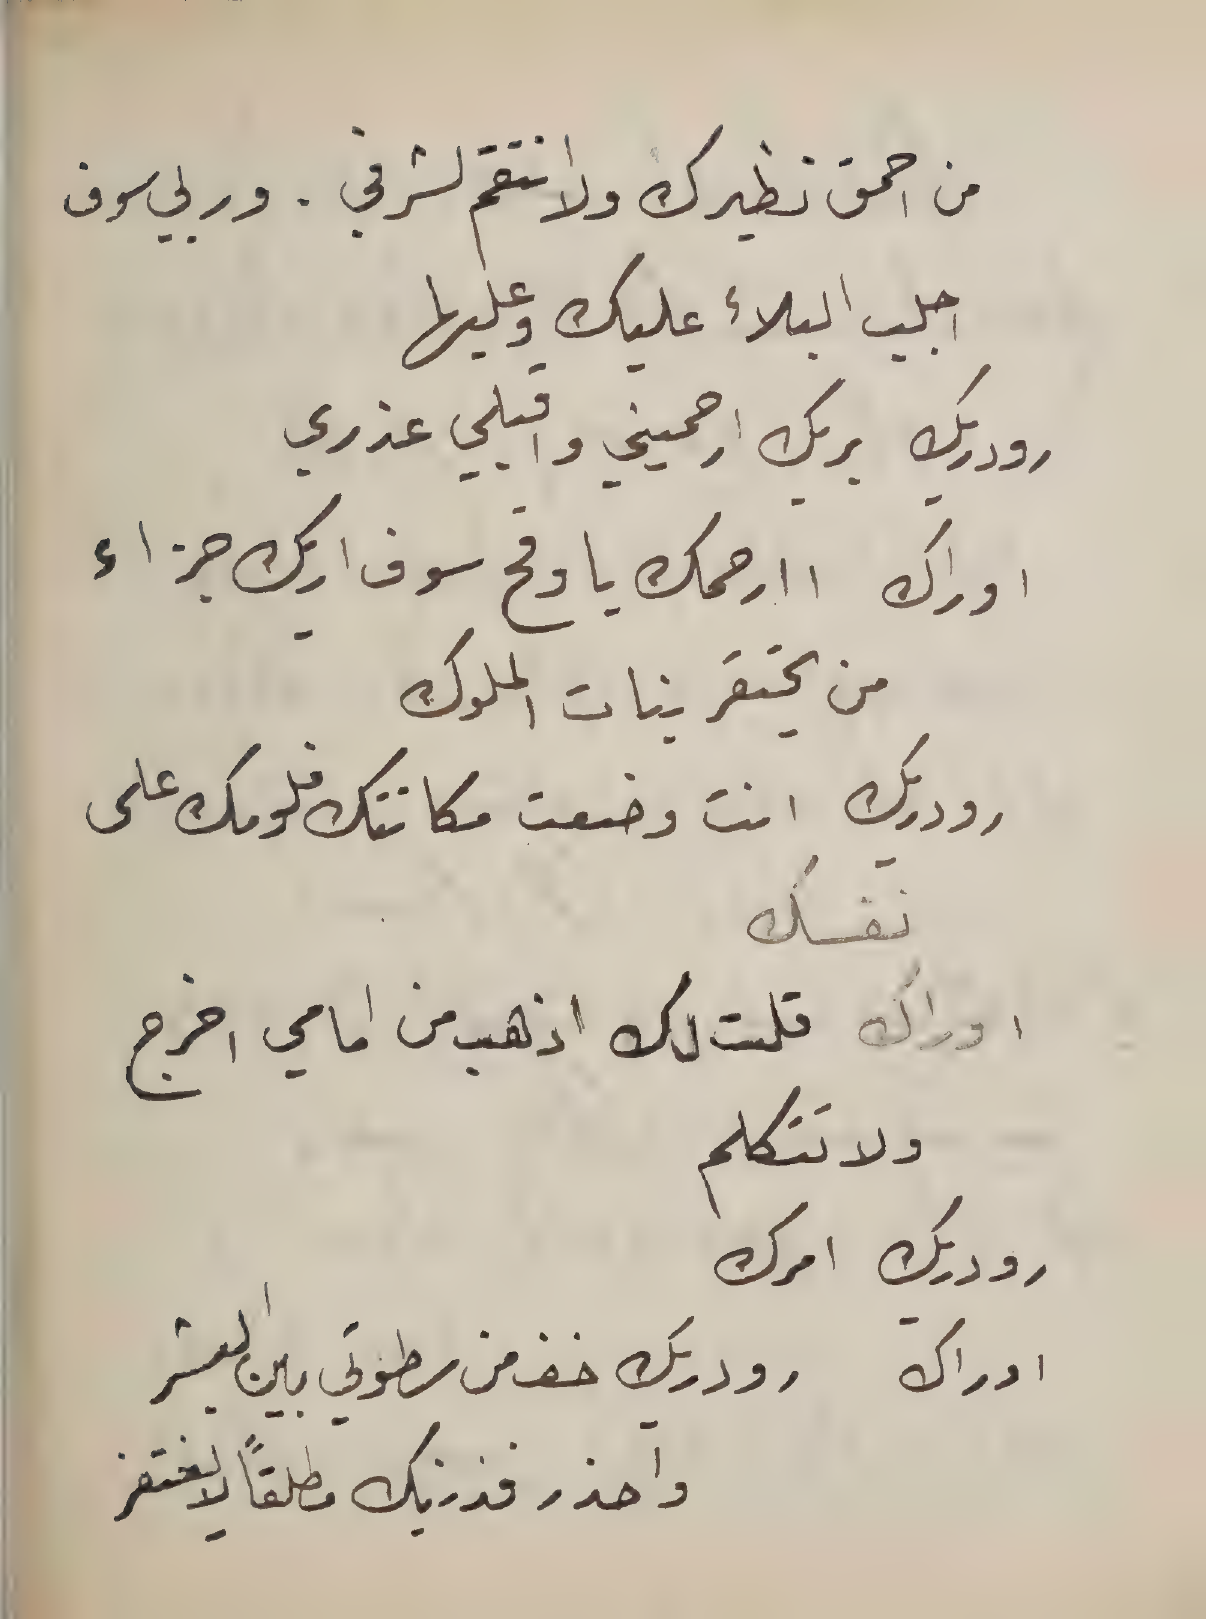 من احمق نظيرك ولانتقم لشرفي . وربي سوف
اجلب البلاء عليك وعليها
رودريك بربك ارحميني واقبلي عذري
اوراك اارحمك يا وقح سوف اريك جزاء
من يحتقر بنات الملوك
رودريك انت وضعت مكانتك فلومك على
نفسك
اوراك قلت لك اذهب من امامي اخرج
ولا تتكلم
رودريك امرك
اوراك رودريك خف من سطوتي بين البشر
واحذر فذنبك مطلقاً لا يغتفر